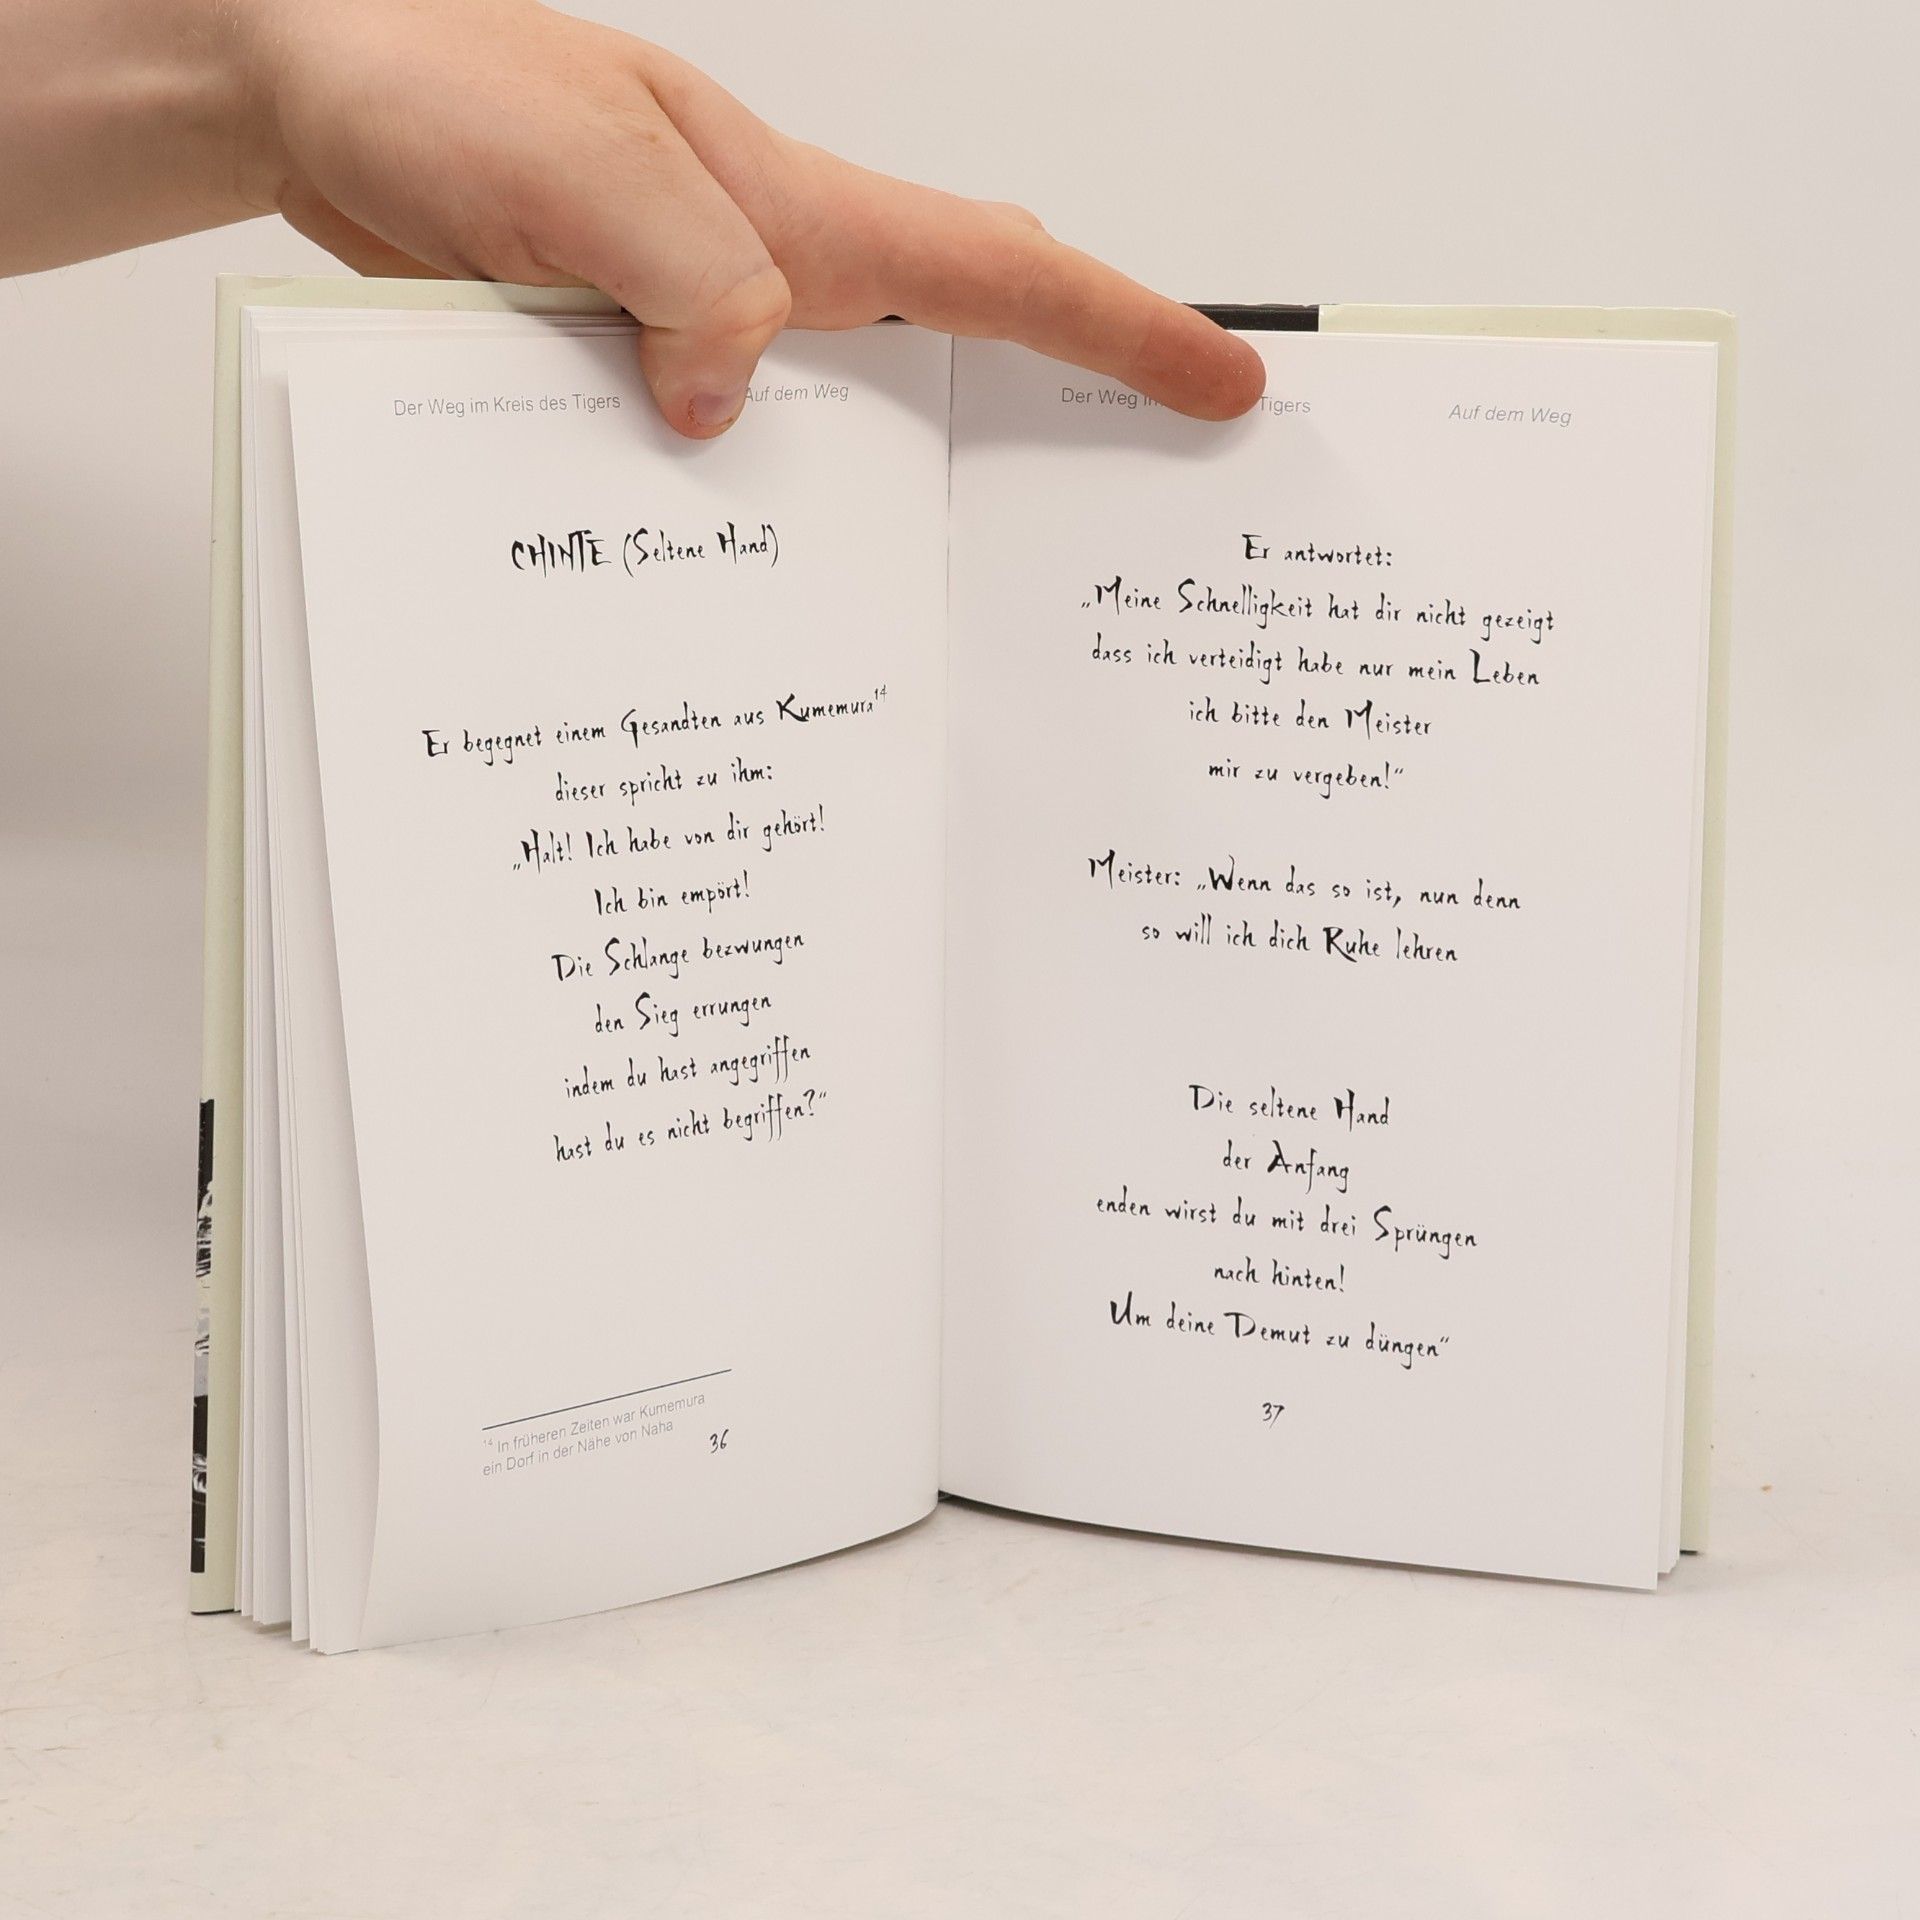 Der Weg im Kreis des Tigers
Auf dem Weg
CHINTE (Seltene Hand)
Er begegnet einem Gesandten aus Kumemura¹⁴
dieser spricht zu ihm:
„Halt! Ich habe von dir gehört!
Ich bin empört!
Die Schlange bezwungen
den Sieg errungen
indem du hast angegriffen
hast du es nicht begriffen?“
¹⁴ In früheren Zeiten war Kumemura
ein Dorf in der Nähe von Naha
36
Der Weg Tigers
Auf dem Weg
Er antwortet:
„Meine Schnelligkeit hat dir nicht gezeigt
dass ich verteidigt habe nur mein Leben
ich bitte den Meister
mir zu vergeben!“
Meister: „Wenn das so ist, nun denn
so will ich dich Ruhe lehren
Die seltene Hand
der Anfang
enden wirst du mit drei Sprüngen
nach hinten!
Um deine Demut zu düngen“
37